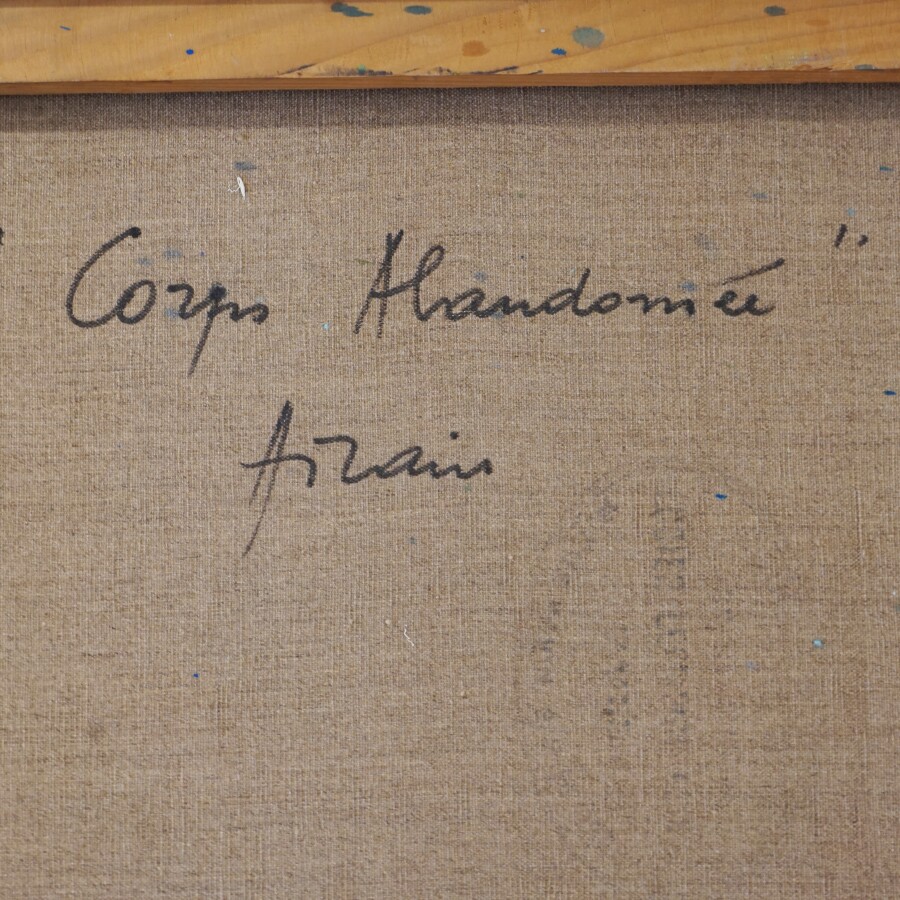 " Corps Abandonnée "
Airain